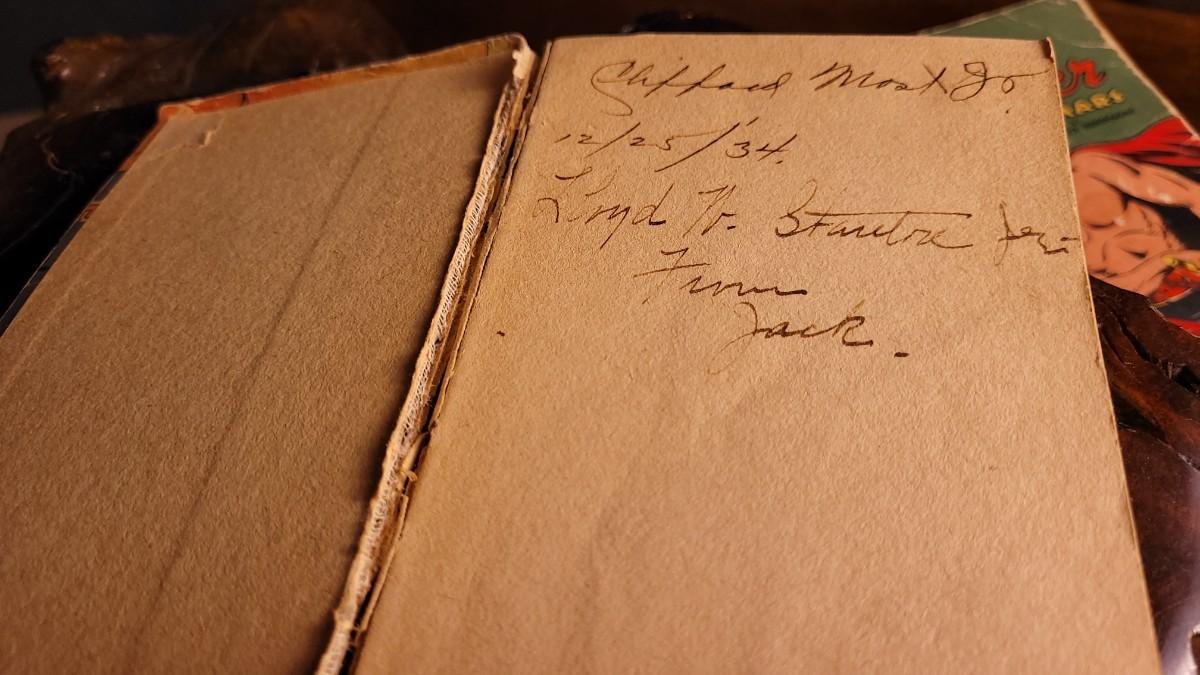 Clifford Most Jr.
12/25/'34.
Lloyd W. Stanton Jr.
From
Jack.
er
MARS